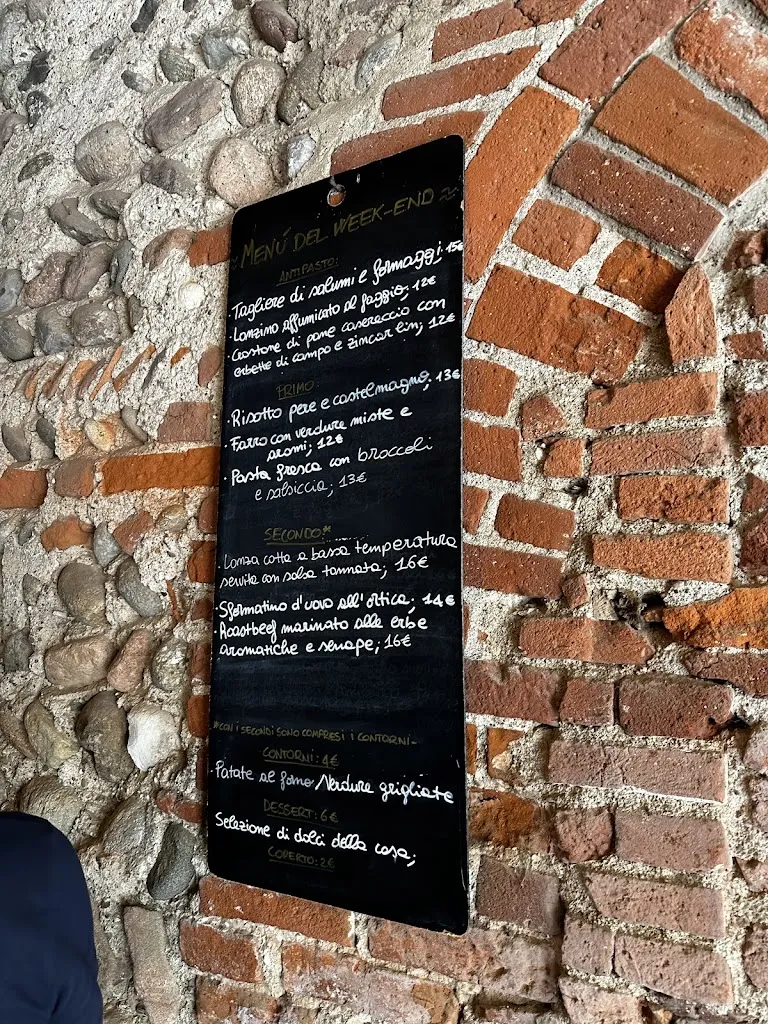 ~ MENÚ DEL WEEK-END ~
ANTIPASTO:
· Tagliere di salumi e formaggi; 15€
· Lonzino affumicato al faggio; 12€
· Crostone di pane casereccio con
erbette di campo e zincarlin; 12€
PRIMO:
· Risotto pere e castelmagno; 13€
· Farro con verdure miste e
aromi; 12€
· Pasta fresca con broccoli
e salsiccia; 13€
SECONDO*
· Lonza cotta a bassa temperatura
servita con salsa tonnata; 16€
· Sformatino d'uovo all'ortica; 14€
· Roastbeef marinato alle erbe
aromatiche e senape; 16€
*CON I SECONDI SONO COMPRESI I CONTORNI-
CONTORNI: 4€
· Patate al forno/Verdure grigliate
DESSERT: 6€
Selezione di dolci della casa;
COPERTO: 2€